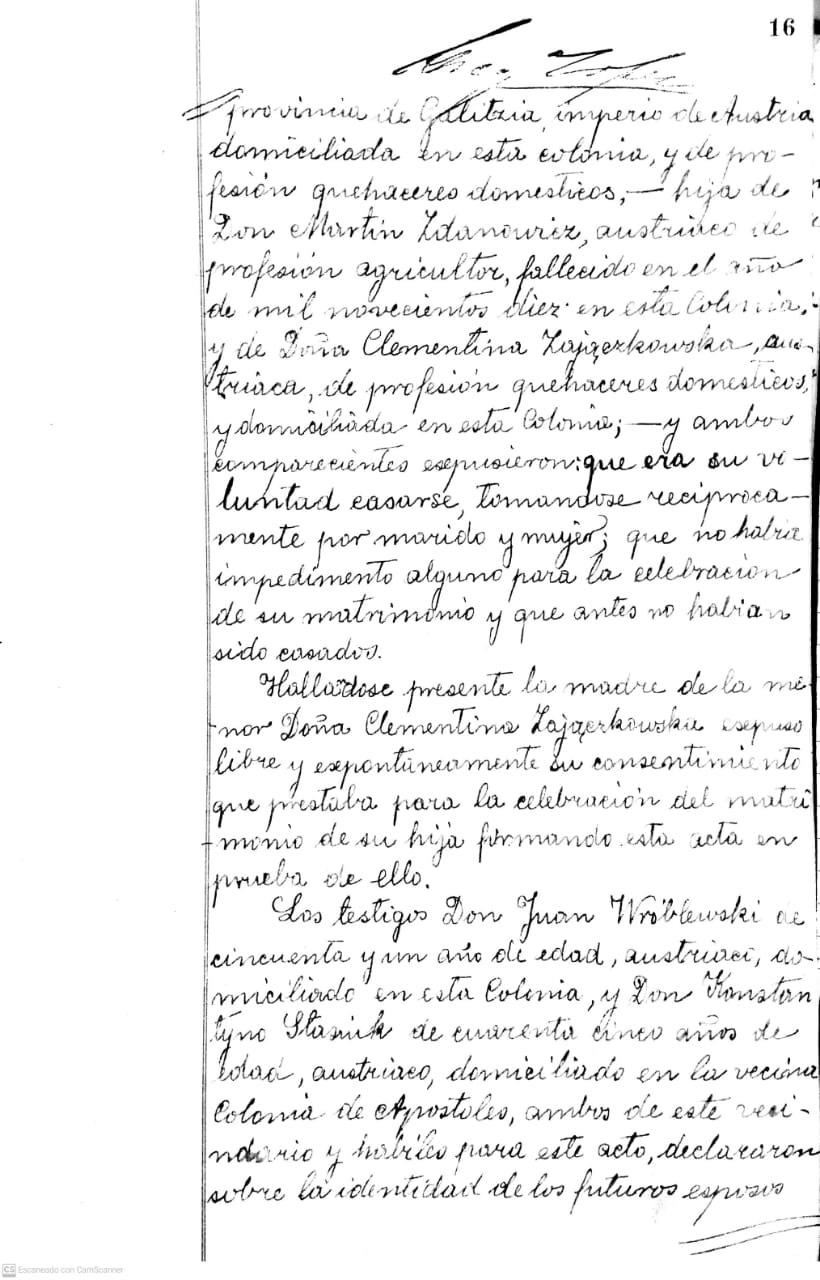 16
provincia de Galitzia, imperio de Austria
domiciliada en esta colonia, y de pro-
fesión quehaceres domesticos,— hija de
Don Martin Zdanowicz, austriaco de
profesión agricultor, fallecido en el año
de mil novecientos diez en esta Colonia,
y de Doña Clementina Zajączkowska, aus-
triaca, de profesión quehaceres domesticos,
y domiciliada en esta Colonia;— y ambos
comparecientes esepusieron: que era su vo-
luntad casarse, tomandose reciproca-
mente por marido y mujer; que no habia
impedimento alguno para la celebración
de su matrimonio y que antes no habian
sido casados.
Halladose presente la madre de la me-
nor Doña Clementina Zajączkowska esepuso
libre y espontaneamente su consentimiento
que prestaba para la celebración del matri
monio de su hija firmando esta acta en
prueba de ello.
Los testigos Don Juan Wróblewski de
cincuenta y un año de edad, austriaco, do-
miciliado en esta Colonia, y Don Konstan
tyno Stasiuk de cuarenta cinco años de
edad, austriaco, domiciliado en la vecina
Colonia de Apostoles, ambos de este veci-
ndario y habiles para este acto, declararon
sobre la identidad de los futuros esposos
CS Escaneado con CamScanner